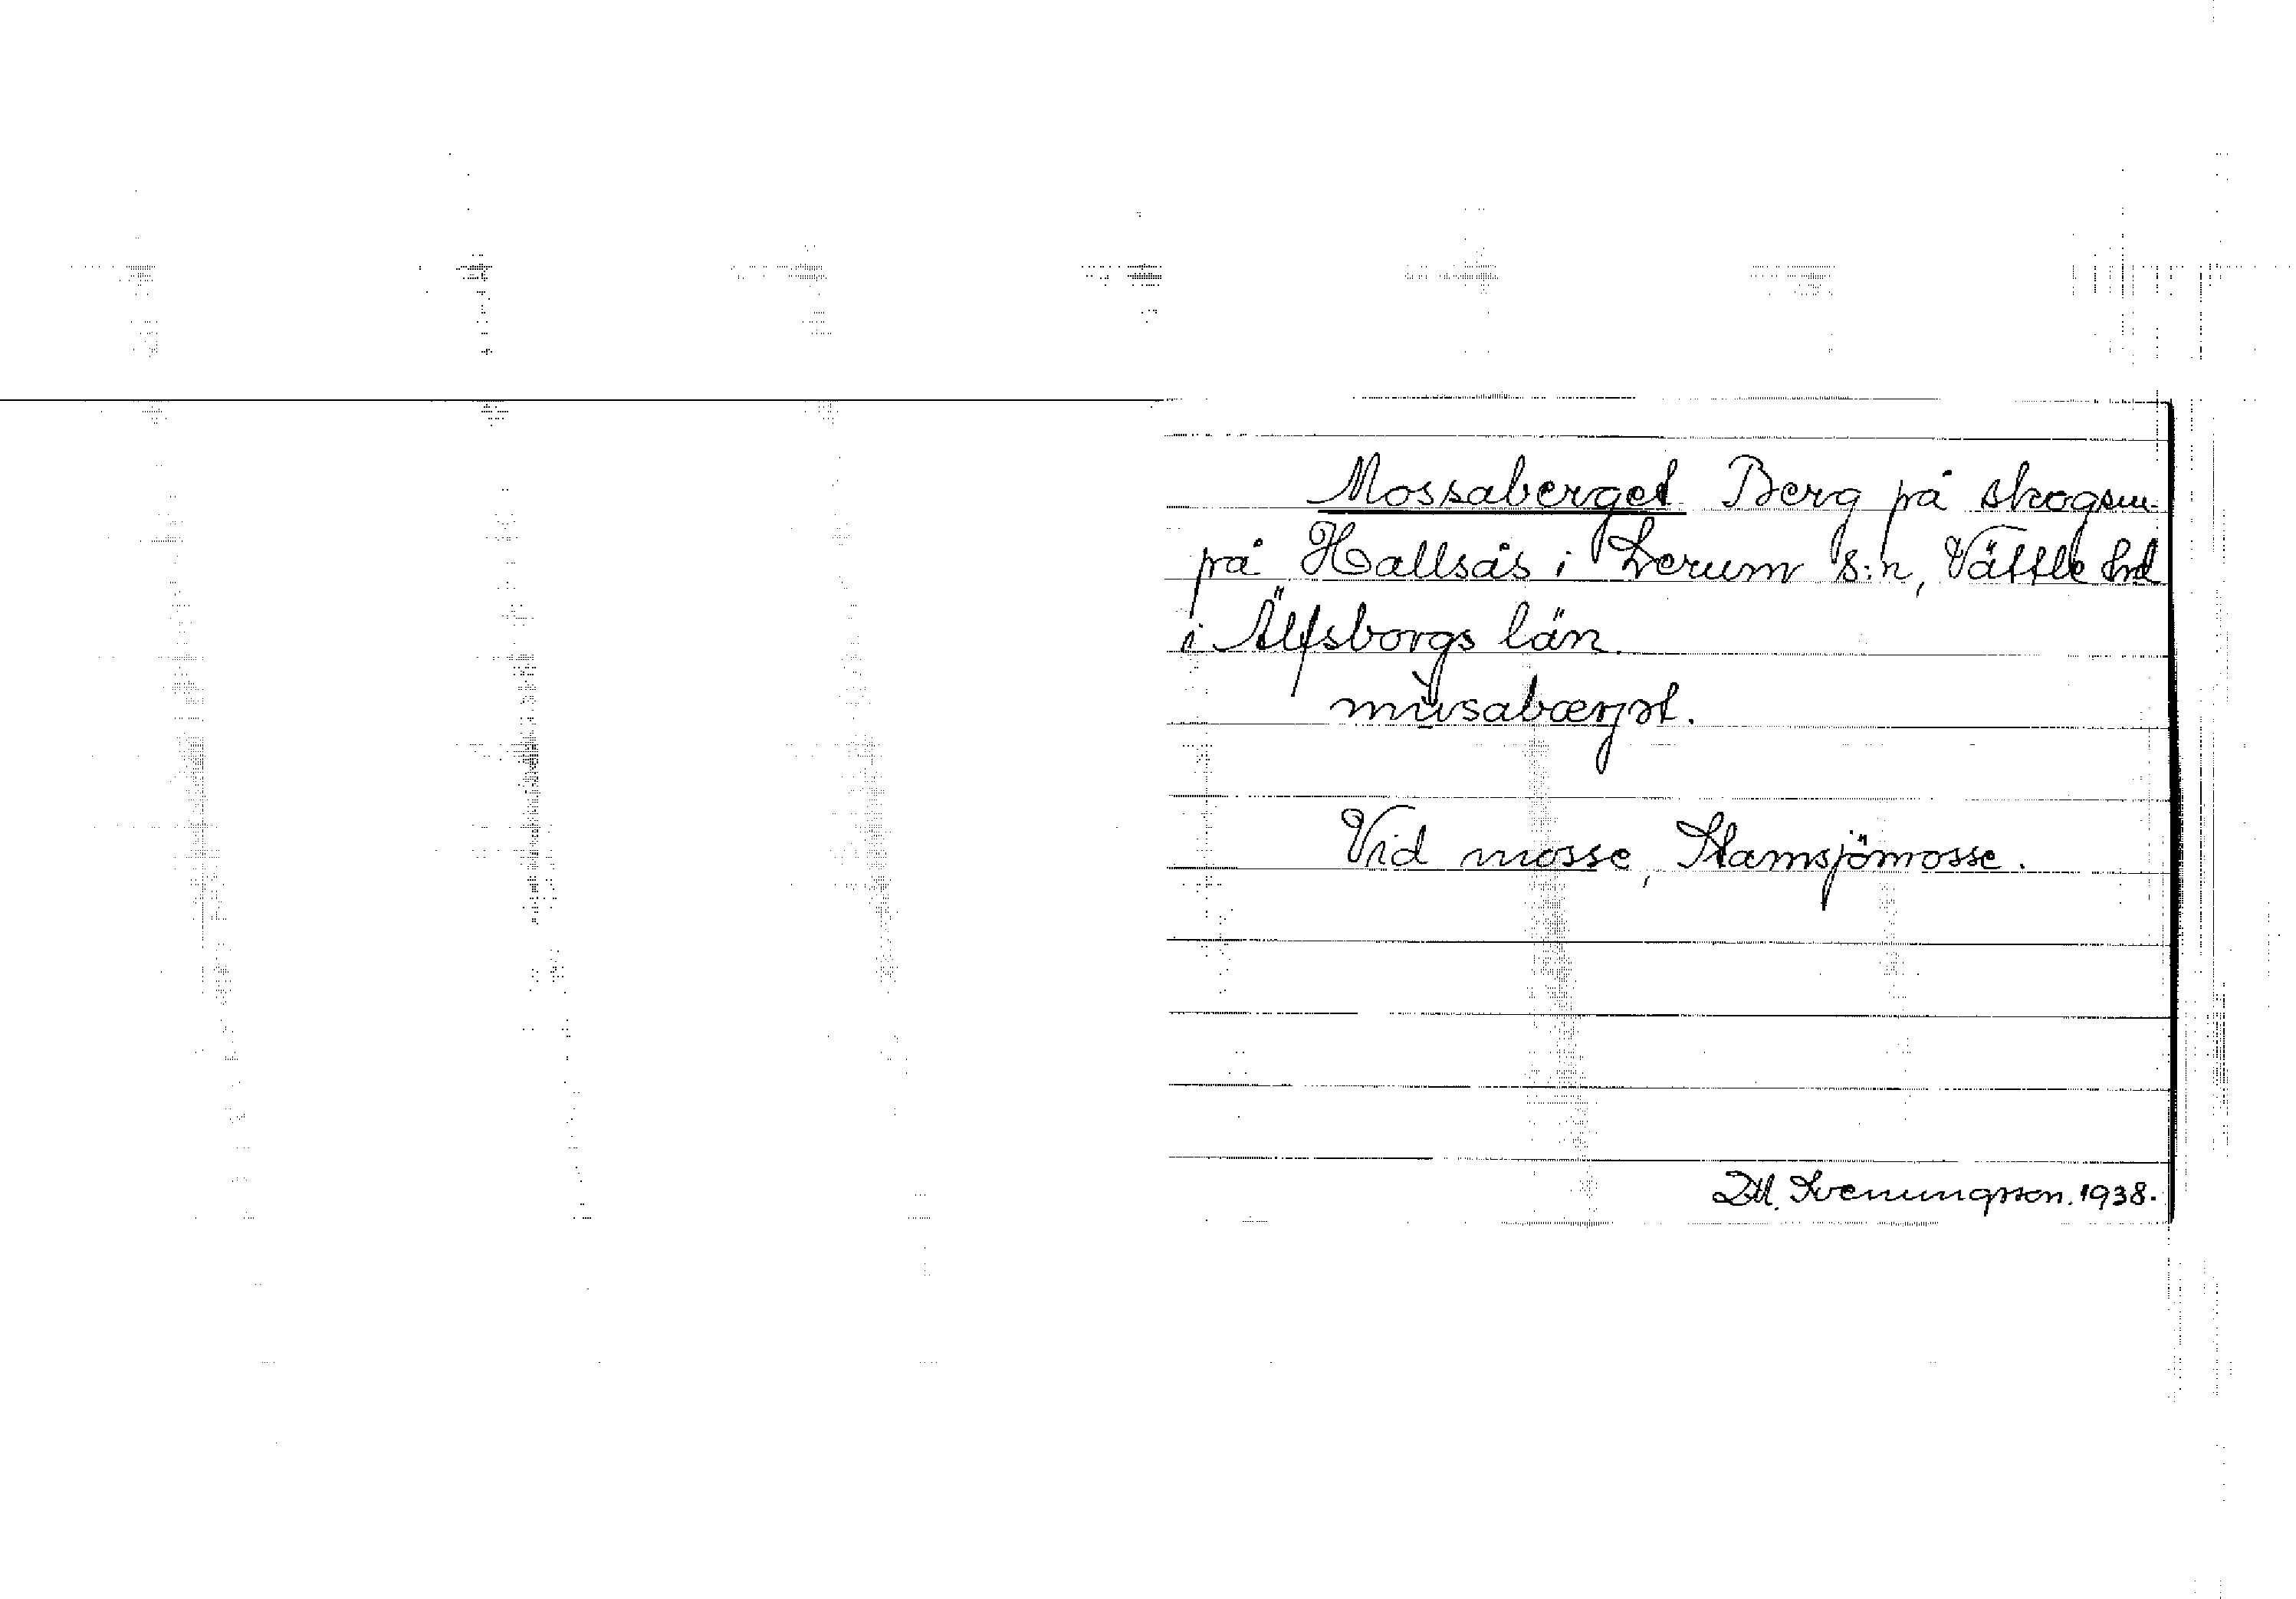 Mossaberget Berg på skogsm.
på Hallsås i Lerum s:n, Vättle hd
i Älfsborgs län.
Vid mosse, Stamsjömosse.
Svenungsson. 1938.